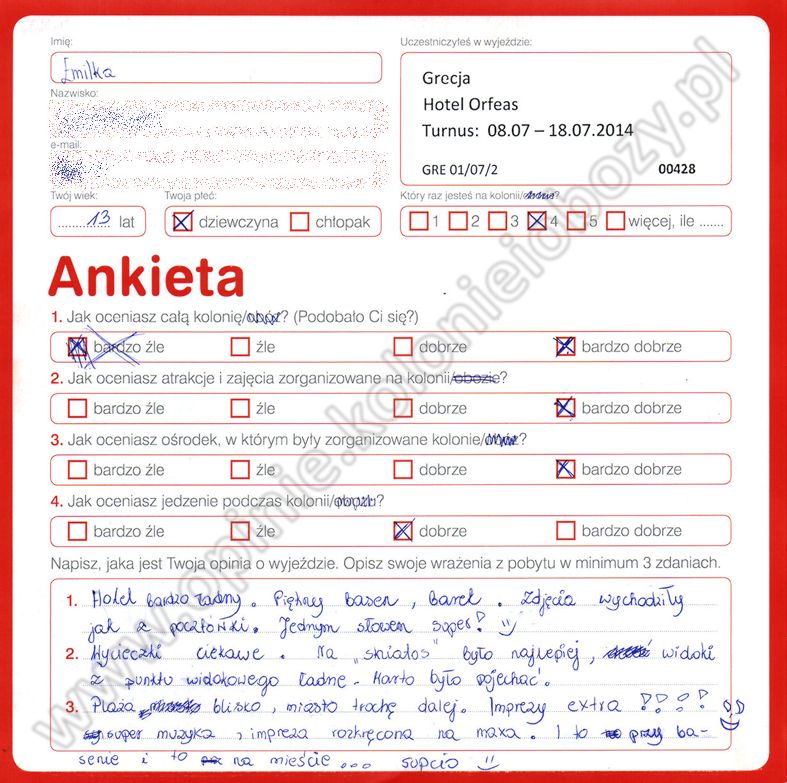 Imię:
Emilka
Uczestniczyłeś w wyjeździe:
Grecja
Hotel Orfeas
Turnus: 08.07 – 18.07.2014
GRE 01/07/2 00428
Nazwisko:
e-mail:
Twój wiek:
13 lat
Twoja płeć:
dziewczyna chłopak
Który raz jesteś na kolonii/?
1 2 3 4 5 więcej, ile .......
Ankieta
1. Jak oceniasz całą kolonię/obóz? (Podobało Ci się?)
bardzo źle źle dobrze bardzo dobrze
2. Jak oceniasz atrakcje i zajęcia zorganizowane na kolonii/obozie?
bardzo źle źle dobrze bardzo dobrze
3. Jak oceniasz ośrodek, w którym były zorganizowane kolonie/?
bardzo źle źle dobrze bardzo dobrze
4. Jak oceniasz jedzenie podczas kolonii/obozu?
bardzo źle źle dobrze bardzo dobrze
Napisz, jaka jest Twoja opinia o wyjeździe. Opisz swoje wrażenia z pobytu w minimum 3 zdaniach.
1. Hotel bardzo ładny. Piękny basen, barek. Zdjęcia wychodziły
jak z pocztówki. Jednym słowem super!
2. Wycieczki ciekawe. Na „skiatos" było najlepiej, widoki
z punktu widokowego ładne. Warto było pojechać.
3. Plaża blisko, miasto trochę dalej. Imprezy extra !!!!
super muzyka, impreza rozkręcona na maxa. I to przy ba-
senie i to na mieście... supcio
www.opinie.kolonieiobozy.pl